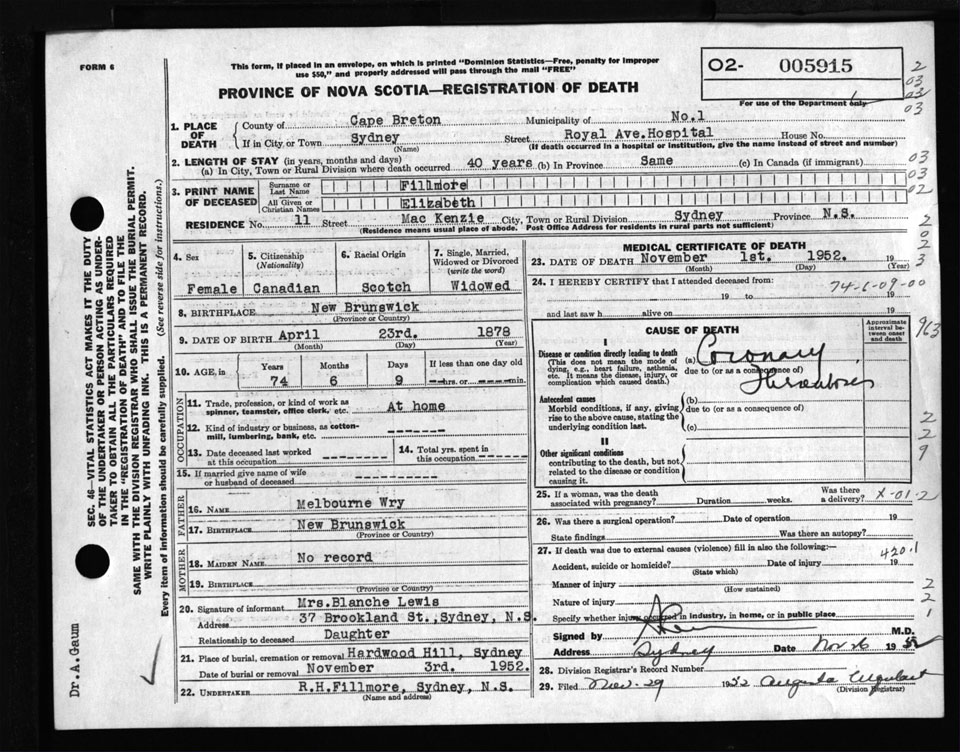 FORM 6
This form, if placed in an envelope, on which is printed "Dominion Statistics—Free, penalty for improper
use $50," and properly addressed will pass through the mail "FREE"
PROVINCE OF NOVA SCOTIA—REGISTRATION OF DEATH
O2- 005915
For use of the Department only
2
03
03
03
1. PLACE OF DEATH County of Cape Breton Municipality of No.1
If in City or Town Sydney Street Royal Ave.Hospital House No.
(Name) (If death occurred in a hospital or institution, give the name instead of street and number)
2. LENGTH OF STAY (in years, months and days)
(a) In City, Town or Rural Division where death occurred 40 years (b) In Province Same (c) In Canada (if immigrant)
03
03
02
3. PRINT NAME OF DECEASED Surname or Last Name Fillmore
All Given or Christian Names Elizabeth
RESIDENCE No. 11 Street Mac Kenzie City, Town or Rural Division Sydney Province N.S.
(Residence means usual place of abode. Post Office Address for residents in rural parts not sufficient)
2
0
2
3
4. Sex
Female
5. Citizenship (Nationality)
Canadian
6. Racial Origin
Scotch
7. Single, Married, Widowed or Divorced (write the word)
Widowed
8. BIRTHPLACE New Brunswick
(Province or Country)
9. DATE OF BIRTH April 23rd. 1878
(Month) (Day) (Year)
10. AGE, in Years Months Days If less than one day old
74 6 9 hrs. or min.
OCCUPATION
11. Trade, profession, or kind of work as spinner, teamster, office clerk, etc. At home
12. Kind of industry or business, as cotton-mill, lumbering, bank, etc.
13. Date deceased last worked at this occupation
14. Total yrs. spent in this occupation
15. If married give name of wife or husband of deceased
FATHER
16. NAME Melbourne Wry
17. BIRTHPLACE New Brunswick
(Province or Country)
MOTHER
18. MAIDEN NAME No record
19. BIRTHPLACE
(Province or Country)
20. Signature of informant Mrs.Blanche Lewis
Address 37 Brookland St.,Sydney, N.S.
Relationship to deceased Daughter
21. Place of burial, cremation or removal Hardwood Hill, Sydney
Date of burial or removal November 3rd. 1952.
22. UNDERTAKER R.H.Fillmore, Sydney, N.S.
(Name and address)
MEDICAL CERTIFICATE OF DEATH
23. DATE OF DEATH November 1st. 1952. 19
(Month) (Day) (Year)
24. I HEREBY CERTIFY that I attended deceased from:
74-6-09-00
19 to 19
and last saw h alive on 19
CAUSE OF DEATH
Approximate interval between onset and death
963
I
Disease or condition directly leading to death
(This does not mean the mode of dying, e.g., heart failure, asthenia, etc. It means the disease, injury, or complication which caused death.)
(a) Coronary
due to (or as a consequence of)
Thrombosis
Antecedent causes
Morbid conditions, if any, giving rise to the above cause, stating the underlying condition last.
(b)
due to (or as a consequence of)
(c)
II
Other significant conditions
contributing to the death, but not related to the disease or condition causing it.
2
2
9
25. If a woman, was the death associated with pregnancy? Duration weeks. Was there a delivery? X-01-2
26. Was there a surgical operation? Date of operation 19
State findings Was there an autopsy?
27. If death was due to external causes (violence) fill in also the following:—
420.1
Accident, suicide or homicide? Date of injury 19
(State which)
Manner of injury
(How sustained)
Nature of injury
Specify whether injury occurred in industry, in home, or in public place
2
2
1
Signed by M.D.
Address Sydney Date Nov 26 1952
28. Division Registrar's Record Number
29. Filed Nov-29 1952 Augusta Urquhart
(Division Registrar)
SEC. 46—VITAL STATISTICS ACT MAKES IT THE DUTY
OF THE UNDERTAKER OR PERSON ACTING AS UNDER-
TAKER TO OBTAIN ALL THE PARTICULARS REQUIRED
IN THE "REGISTRATION OF DEATH" AND TO FILE THE
SAME WITH THE DIVISION REGISTRAR WHO SHALL ISSUE THE BURIAL PERMIT.
WRITE PLAINLY WITH UNFADING INK. THIS IS A PERMANENT RECORD.
Every item of information should be carefully supplied. (See reverse side for instructions.)
Dr.A.Gaum